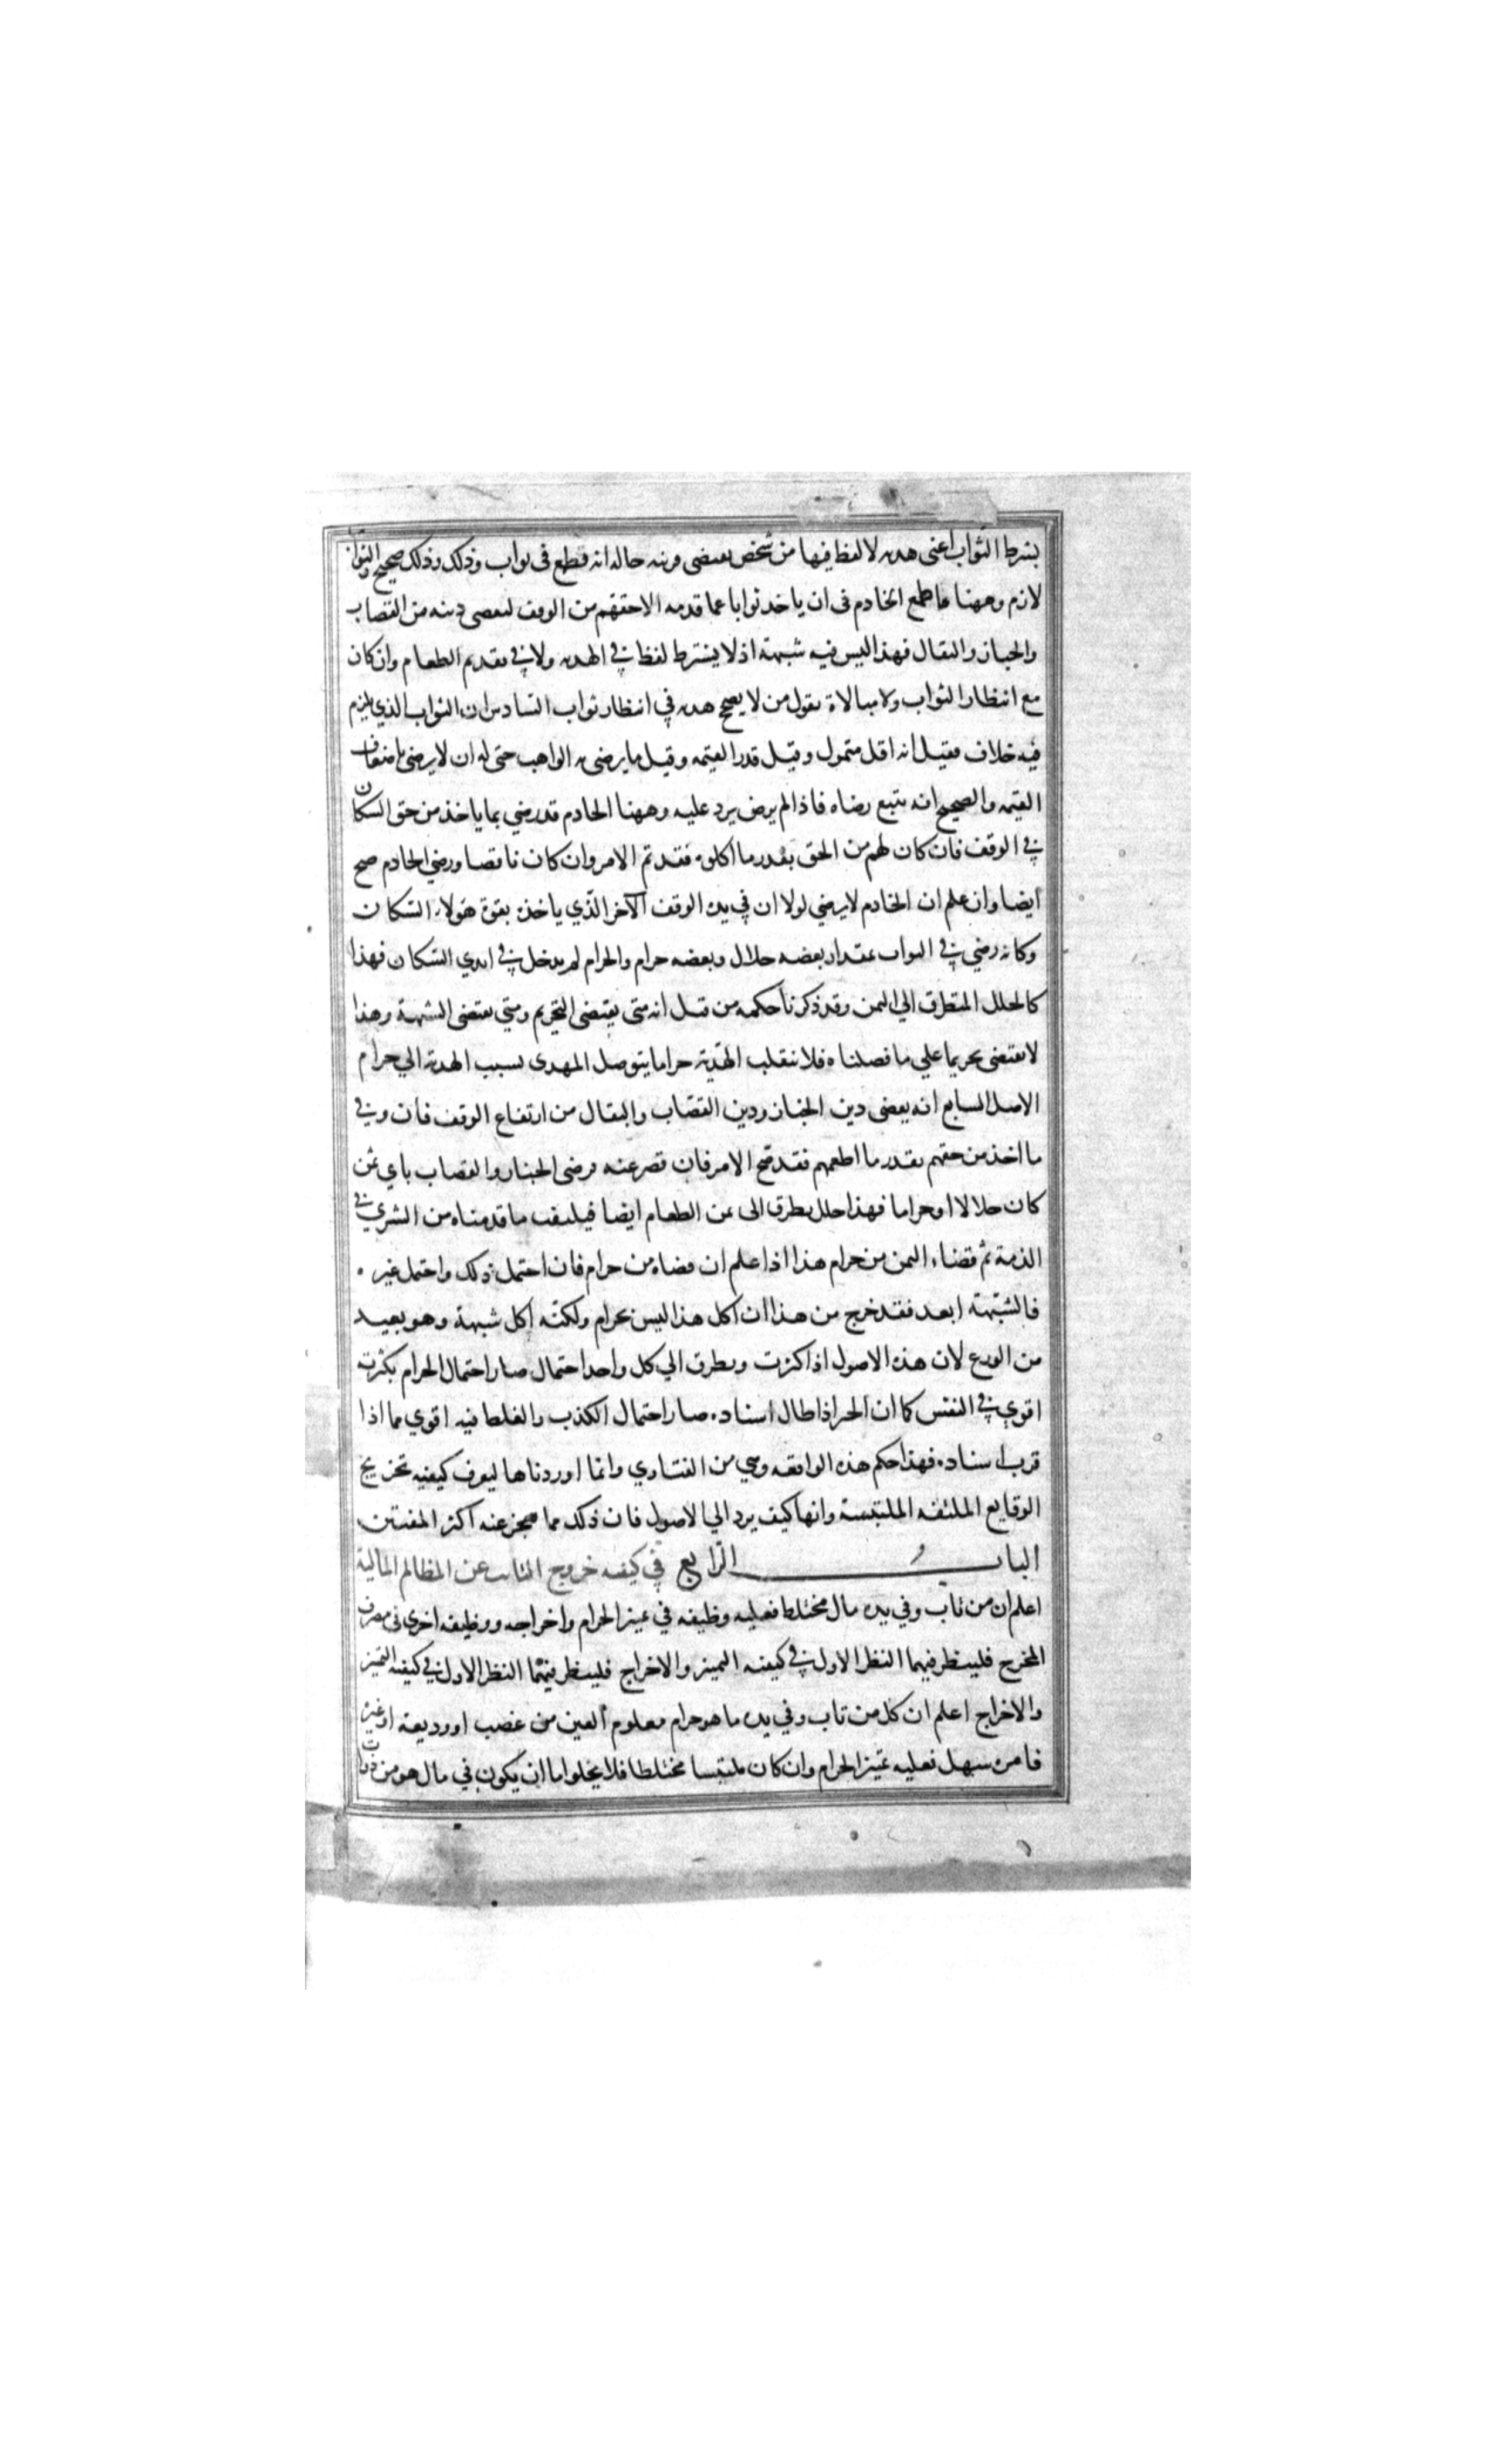 بشرط الثواب اعنى هديه لا لفظ فيها من شخص تقتضى قرينه حاله انه يطمع فى ثواب وذلك وذلك صحيح والثواب
لازم وههنا ما طمع الخادم فى ان ياخذ ثوابا عما قدمه الا حقهم من الوقف ليقضى دينه من القصاب
والخباز والبقال فهذا ليس فيه شبهة اذ لا يشترط لفظ في الهديه ولا في تقديم الطعام وان كان
مع انتظار الثواب ولا مبالاة بقول من لا يصحح هديه في انتظار ثواب السادس ان الثواب الذي يلزم
فيه خلاف فقيل انه اقل متمول وقيل قدر القيمه وقيل ما يرضى به الواهب حتى له ان لا يرضى باضعاف
القيمه والصحيح انه يتبع رضاه فاذا لم يرض يرد عليه وههنا الخادم قد رضي بما ياخذ من حق السكان
في الوقف فان كان لهم من الحق بقدر ما اكلوه فقد تم الامر وان كان ناقصا ورضي الخادم صح
ايضا وان علم ان الخادم لا يرضي لولا ان في يده الوقف الآخر الذي ياخذه بقوة هولاء السكان
وكانه رضي في الثواب بمقدار بعضه حلال وبعضه حرام والحرام لم يدخل في ايدي السكان فهذا
كالخلل المتطرق الي الثمن وقد ذكرنا حكمه من قبل انه متى يقتضى التحريم ومتي يقتضى الشبهة وهذا
لا يقتضى تحريما علي ما فصلناه فلا تنقلب الهدية حراما بتوصل المهدى بسبب الهديه الي حرام
الاصل السابع انه يقضى دين الخباز ودين القصاب والبقال من ارتفاع الوقف فان وفي
ما اخذ من حقهم بقدر ما اطعمهم فقد صح الامر فان قصر عنه فرضى الخباز والقصاب باي ثمن
كان حلالا او حراما فهذا خلل تطرق الى ثمن الطعام ايضا فيلتفت ما قدمناه من الشري في
الذمة ثم قضاء الثمن من حرام هذا اذا علم ان قضاه من حرام فان احتمل ذلك واحتمل غيره
فالشبهة ابعد فقد خرج من هذا ان اكل هذا ليس بحرام ولكنه اكل شبهة وهو بعيد
من الورع لان هذه الاصول اذا كثرت وتطرق الي كل واحد احتمال صار احتمال الحرام بكثرته
اقوي في النفس كما ان الخبر اذا طال اسناده صار احتمال الكذب والغلط فيه اقوي مما اذا
قرب اسناده فهذا حكم هذه الواقعه وهي من الفتاوي وانما اوردناها ليعرف كيفيه تخريج
الوقايع الملتفه الملتبسة وانها كيف يرد الي الاصول فان ذلك مما يعجز عنه اكثر المفتين
الباب الرابع في كيفيه خروج التائب عن المظالم المالية
اعلم ان من تاب وفي يده مال مختلط فعليه وظيفه في تميز الحرام واخراجه ووظيفه اخرى فى مصرف
المخرج فلينظر فيهما النظر الاول في كيفيه التميز والاخراج فلينظر فيهما النظر الاول في كيفيه التميز
والاخراج اعلم ان كل من تاب وفي يده ما هو حرام معلوم العين من غصب او وديعة او غيره
فامره سهل فعليه تميز الحرام وان كان ملتبسا مختلطا فلا يخلوا اما ان يكون في مال هو من ذوات